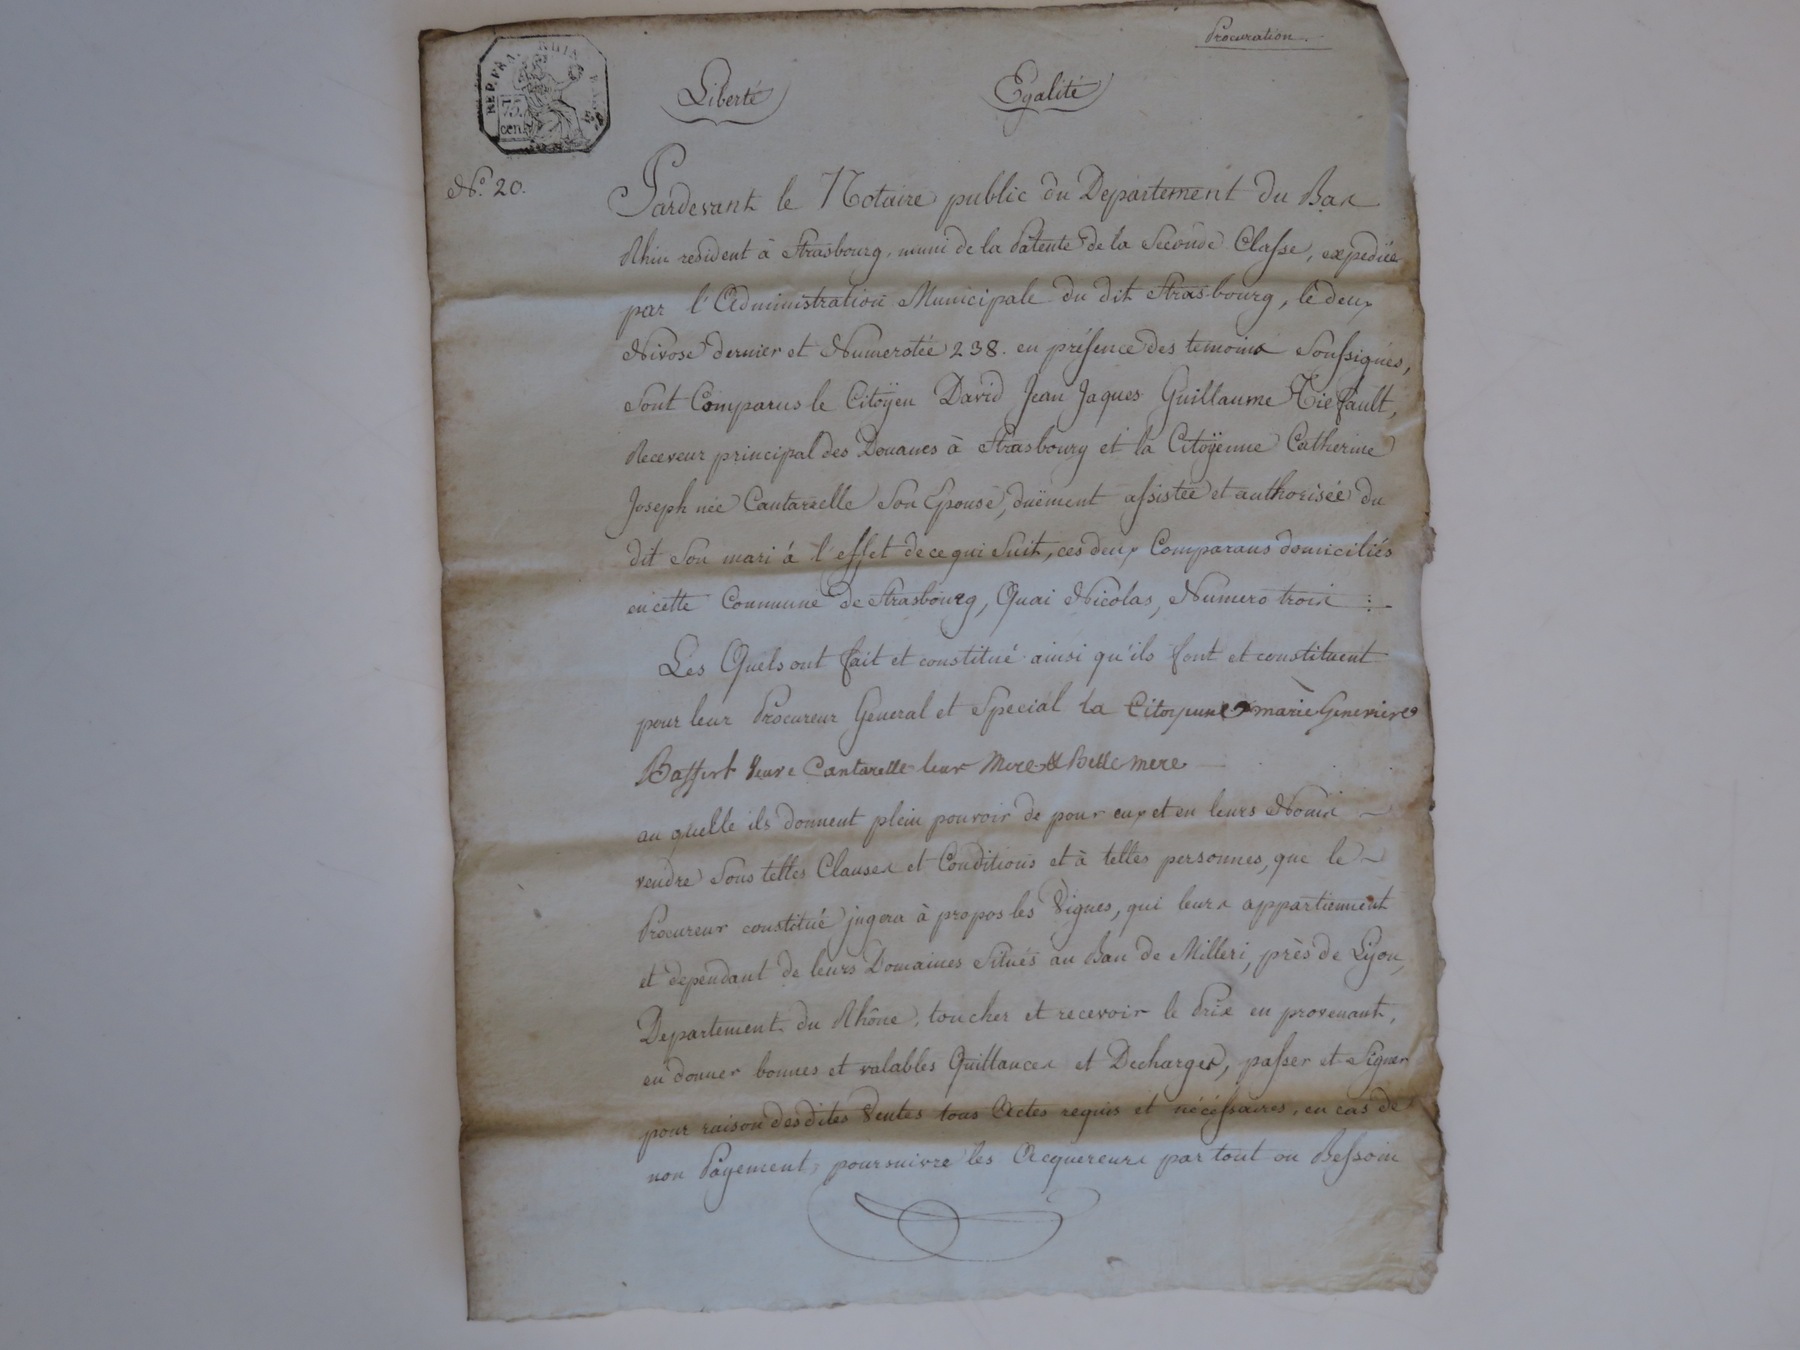 Procuration.
REP. FRA.
75.
cen.
Liberté Egalité
No. 20.
Pardevant le Notaire public du Departement du Bas
Rhin resident à Strasbourg, muni de la Patente de la Seconde Classe, expediée
par l'Administration Municipale du dit Strasbourg, le deux
Nivose dernier et Numerotée 238. en présence des temoins Soussignés,
Sont Comparus le Citoÿen David Jean Jaques Guillaume Tieffault,
Receveur principal des Douanes à Strasbourg et la Citoÿenne Catherine
Joseph née Cantarelle Son Epouse, duëment assistée et authorisée du
dit Son mari á l'effet de ce qui Suit, ces deux Comparans domiciliés
en cette Commune de Strasbourg, Quai Nicolas, Numero trois :
Les Quels ont fait et constitué ainsi qu'ils font et constituent
pour leur Procureur General et Special la Citoyenne marie Genevieve
Baffert Veuve Cantarelle leur Mere & Belle mere
au quelle ils donnent plein pouvoir de pour eux et en leurs Noms
vendre Sous telles Clauses et Conditions et à telles personnes, que le
Procureur constitué jugera à propos les Vignes, qui leurs appartiennent
et dependant de leurs Domaines Situés au Ban de Milleri, près de Lyon,
Departement du Rhône, toucher et recevoir le Prix en provenant,
en donner bonnes et valables Quittances et Decharges, passer et Signer
pour raison desdites Ventes tous Actes requis et nécéssaires, en cas de
non Payement, poursuivre les Acquereurs par tout ou Bessoin